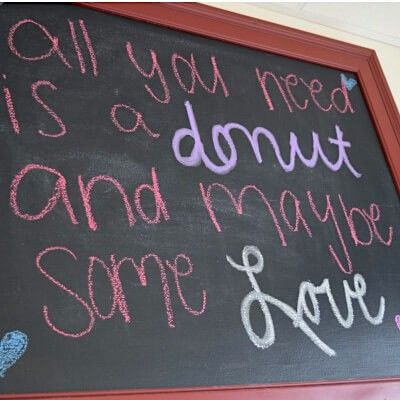 all you need
is a donut
and maybe
some Love